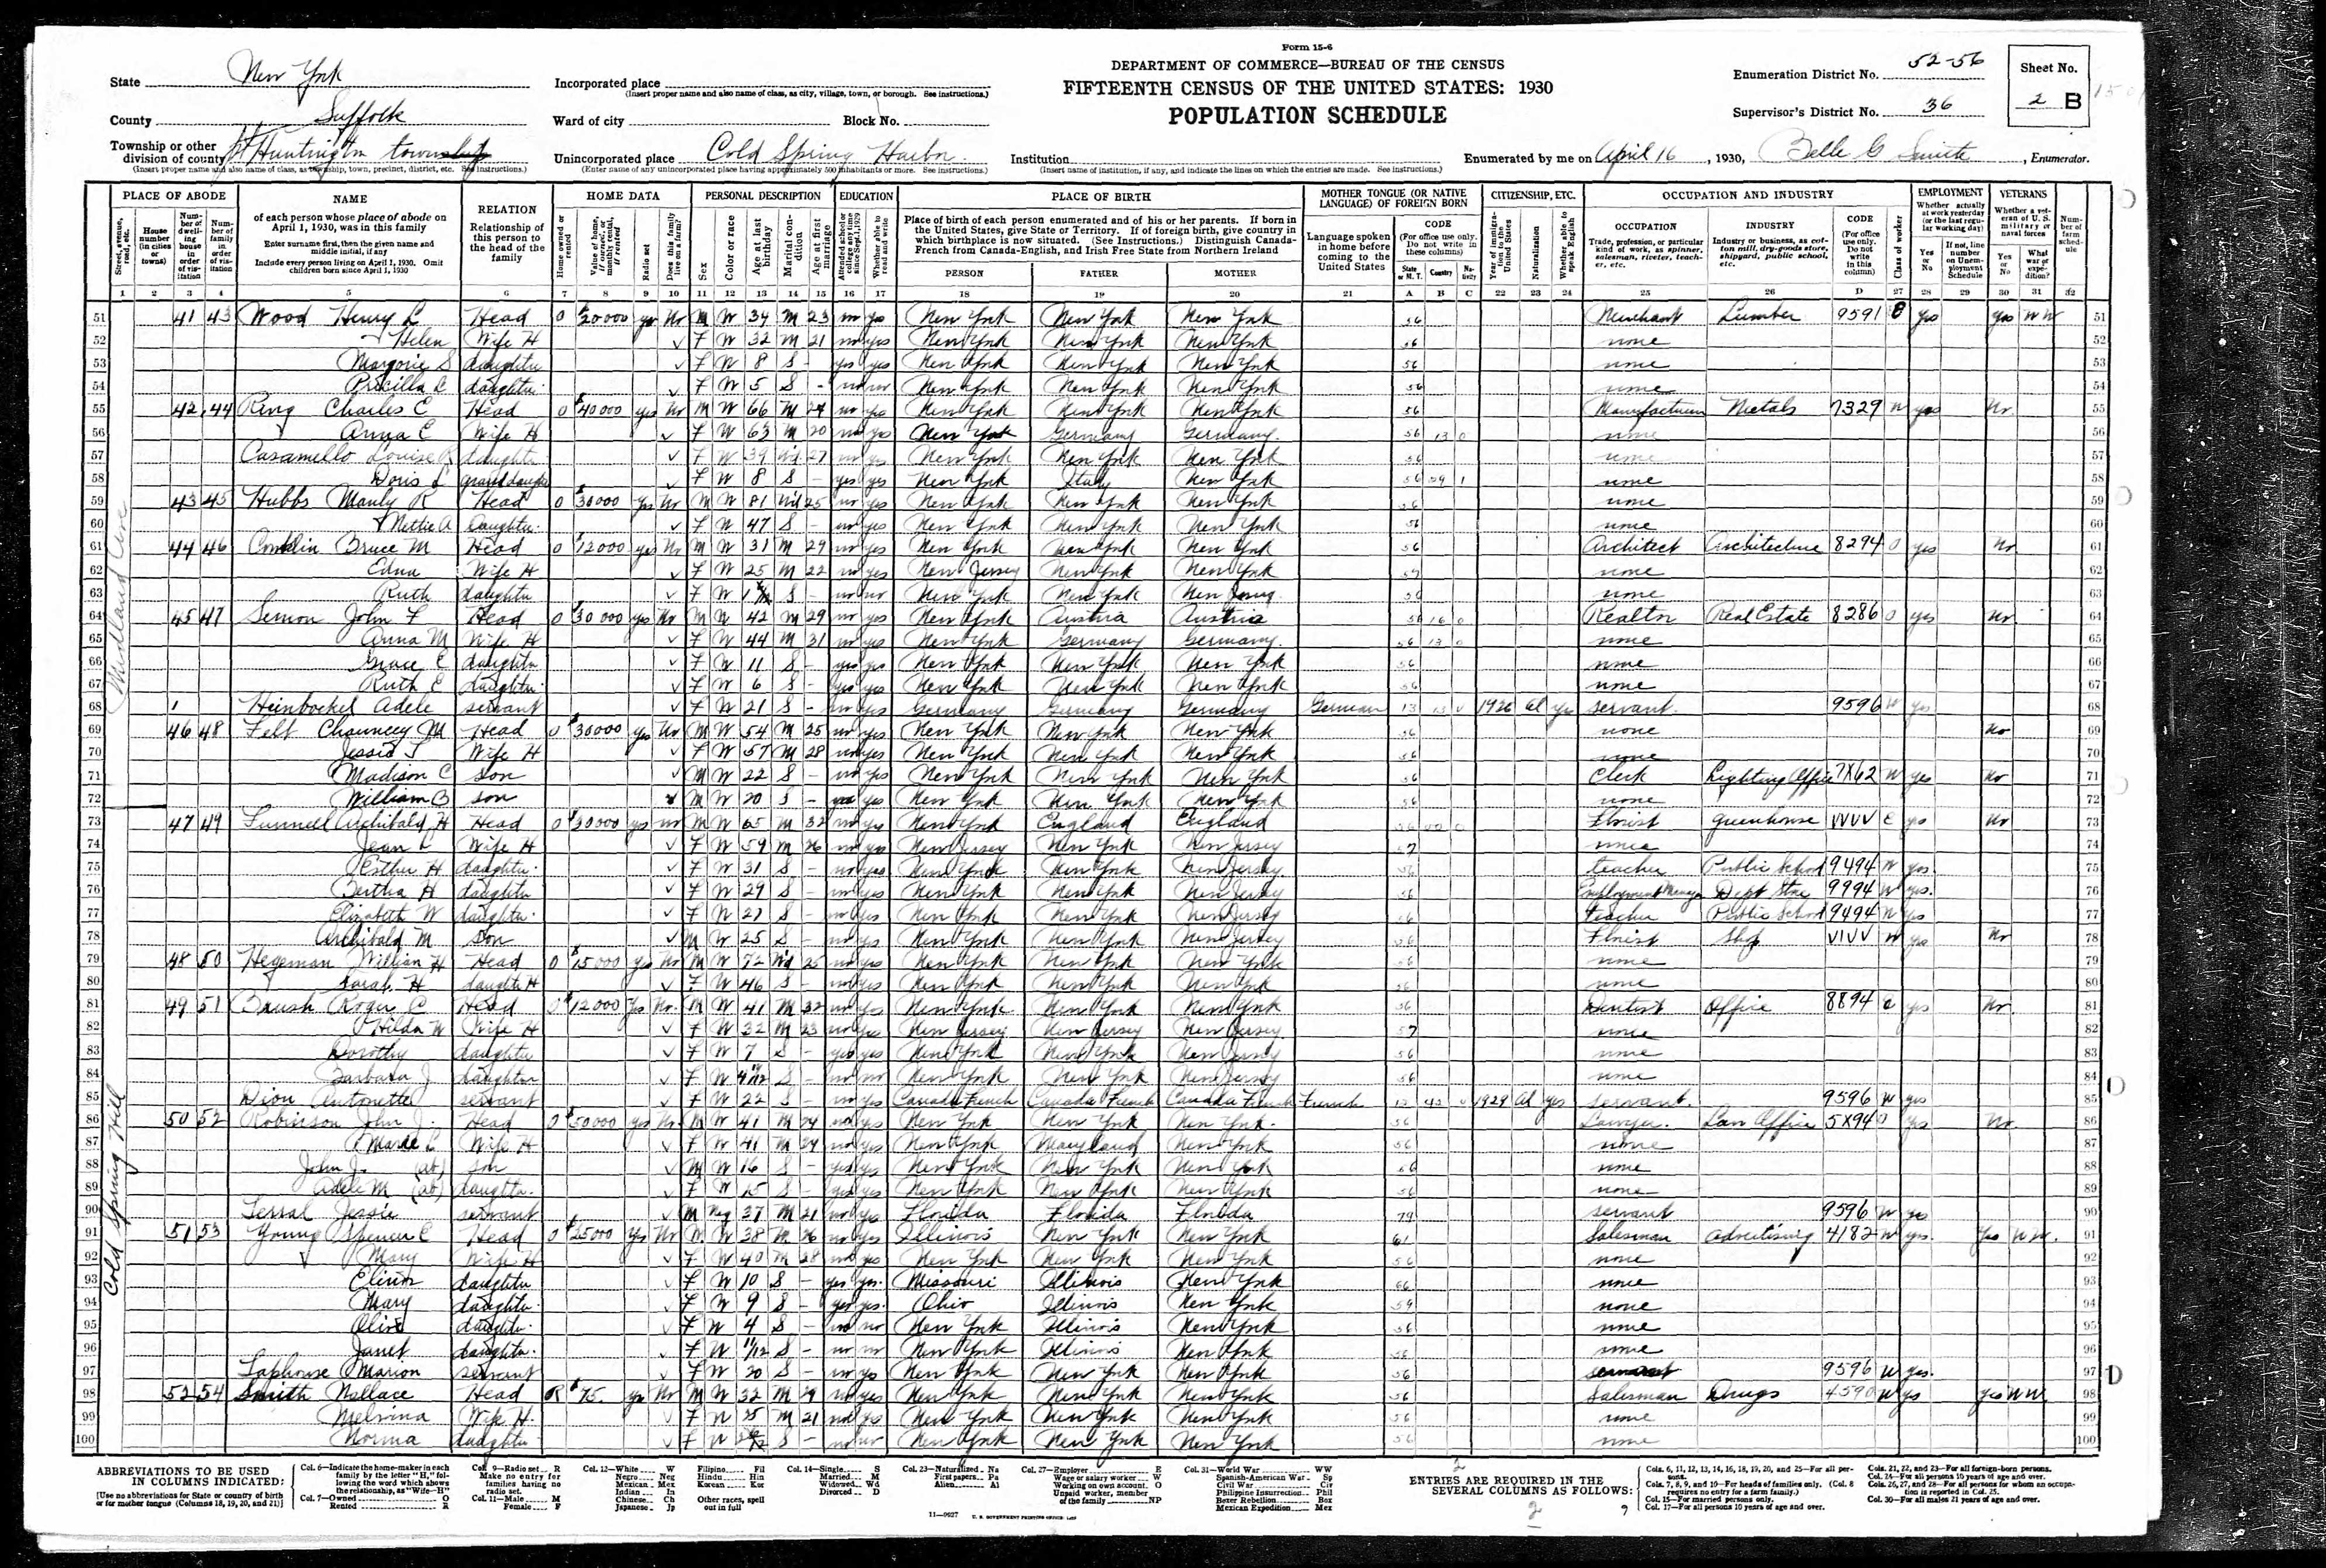 Form 15-6
DEPARTMENT OF COMMERCE—BUREAU OF THE CENSUS
FIFTEENTH CENSUS OF THE UNITED STATES: 1930
POPULATION SCHEDULE
State New York
County Suffolk
Township or other division of county Huntington township
(Insert proper name and also name of class, as township, town, precinct, district, etc. See instructions.)
Incorporated place
(Insert proper name and also name of class, as city, village, town, or borough. See instructions.)
Ward of city Block No.
Unincorporated place Cold Spring Harbor
(Enter name of any unincorporated place having approximately 500 inhabitants or more. See instructions.)
Institution
(Insert name of institution, if any, and indicate the lines on which the entries are made. See instructions.)
Enumeration District No. 52-56
Supervisor's District No. 36
Sheet No. 2 B
Enumerated by me on April 16, 1930, Belle G Smith, Enumerator.
PLACE OF ABODE NAME RELATION HOME DATA PERSONAL DESCRIPTION EDUCATION PLACE OF BIRTH MOTHER TONGUE (OR NATIVE LANGUAGE) OF FOREIGN BORN CITIZENSHIP, ETC. OCCUPATION AND INDUSTRY EMPLOYMENT VETERANS
Midland Ave
51 41 43 Wood Henry L Head O $20000 yes No M W 34 M 23 no yes New York New York New York 56 Merchant Lumber 9591 yes yes WW 51
52 Helen Wife H F W 32 M 21 no yes New York New York New York 56 none 52
53 Marjorie S daughter F W 8 S - yes yes New York New York New York 56 none 53
54 Priscilla daughter F W 5 S - no no New York New York New York 56 none 54
55 42 44 Ring Charles E Head O $40000 yes No M W 66 M 24 no yes New York New York New York 56 Manufacturer Metals 7329 W yes No 55
56 Anna E Wife H F W 63 M 20 no yes New York Germany Germany 56 13 0 none 56
57 Casamello Louise R daughter F W 39 Wd 27 no yes New York New York New York 56 none 57
58 Doris L granddaughter F W 8 S - yes yes New York Italy New York 56 none 58
59 43 45 Hubbs Manly R Head O $30000 yes No M W 81 Wd 25 no yes New York New York New York 56 none 59
60 Mettie A daughter F W 47 S - no yes New York New York New York 56 none 60
61 44 46 Conklin Bruce M Head O $12000 yes No M W 31 M 29 no yes New York New York New York 56 Architect Architecture 8294 O yes No 61
62 Edna Wife H F W 25 M 22 no yes New Jersey New York New York none 62
63 Ruth daughter F W S - no no New York New York New Jersey 56 none 63
64 45 47 Semon John F Head O $30000 yes No M W 42 M 29 no yes New York Austria Austria 56 16 0 Realtor Real Estate 8286 O yes No 64
65 Anna M Wife H F W 44 M 31 no yes New York Germany Germany 56 13 0 none 65
66 Grace E daughter F W 11 S - yes yes New York New York New York 56 none 66
67 Ruth E daughter F W 6 S - yes yes New York New York New York 56 none 67
68 Heinbockel Adele servant F W 21 S - no yes Germany Germany Germany German 13 13 V 1926 Al yes servant 9596 W yes 68
69 46 48 Felt Chauncey M Head O $30000 yes No M W 54 M 25 no yes New York New York New York 56 none No 69
70 Jessie T Wife H F W 57 M 28 no yes New York New York New York 56 none 70
71 Madison C son M W 22 S - no yes New York New York New York 56 Clerk Lighting Office 7X62 W yes No 71
72 William B son M W 20 S - yes yes New York New York New York 56 none 72
73 47 49 Funnell Archibald H Head O $30000 yes no M W 65 M 32 no yes New York England England 56 00 0 Florist Greenhouse VVVV E yes No 73
74 Jean Wife H F W 59 M 26 no yes New Jersey New York New Jersey none 74
75 Esther H daughter F W 31 S - no yes New York New York New Jersey 56 teacher Public School 9494 W yes 75
76 Bertha H daughter F W 29 S - no yes New York New York New Jersey 56 Employment Manager Dept Store 9994 W yes 76
77 Elizabeth W daughter F W 27 S - no yes New York New York New Jersey 56 teacher Public School 9494 W yes 77
78 Archibald M son M W 25 S - no yes New York New York New Jersey 56 Florist Shop VIVV W yes No 78
79 48 50 Hegeman William H Head O $15000 yes No M W 72 Wd 25 no yes New York New York New York 56 none 79
80 Sarah H daughter H F W 46 S - no yes New York New York New York 56 none 80
Cold Spring Hill
81 49 51 Brush Roger C Head O $12000 Yes No M W 41 M 32 no yes New York New York New York 56 Dentist Office 8894 yes No 81
82 Hilda W Wife H F W 32 M 23 no yes New Jersey New Jersey New Jersey 57 none 82
83 Dorothy daughter F W 7 S - yes yes New York New York New Jersey 56 none 83
84 Barbara J daughter F W S - no no New York New York New Jersey 56 none 84
85 Dion Antonette servant F W 22 S - no yes Canada French Canada French Canada French French 1929 Al yes servant 9596 W yes 85
86 50 52 Robinson John J Head O $50000 yes No M W 41 M 24 no yes New York New York New York 56 Lawyer Law Office 5X94 O yes No 86
87 Marie C Wife H F W 41 M 24 no yes New York Maryland New York 56 none 87
88 John J. (ab) son M W 16 S - yes yes New York New York New York 56 none 88
89 Adele M (ab) daughter F W 15 S - yes yes New York New York New York 56 none 89
90 Serral Jessie servant M Neg 37 M 21 no yes Florida Florida Florida 79 servant 9596 W yes 90
91 51 53 Young Spencer E Head O $25000 yes No M W 38 M 26 no yes Illinois New York New York 61 Salesman advertising 4182 W yes Yes WW 91
92 Mary Wife H F W 40 M 28 no yes New York New York New York 56 none 92
93 Elinor daughter F W 10 S - yes yes Missouri Illinois New York 66 none 93
94 Mary daughter F W 9 S - yes yes Ohio Illinois New York 59 none 94
95 Olive daughter F W 4 S - no no New York Illinois New York 56 none 95
96 Janet daughter F W 11/12 S - no no New York Illinois New York 56 none 96
97 Laphouse Marion servant F W 20 S - no yes New York New York New York 56 servant 9596 W yes 97
98 52 54 Smith Wallace Head R $75 yes No M W 32 M 29 no yes New York New York New York 56 Salesman Drugs 4590 W yes yes WW 98
99 Melvina Wife H F W 25 M 21 no yes New York New York New York 56 none 99
100 Norma daughter F W S - no no New York New York New York 56 none 100
ABBREVIATIONS TO BE USED IN COLUMNS INDICATED:
[Use no abbreviations for State or country of birth or for mother tongue (Columns 18, 19, 20, and 21)]
Col. 6—Indicate the home-maker in each family by the letter "H," following the word which shows the relationship, as "Wife—H"
Col. 7—Owned O Rented R
Col. 9—Radio set R Make no entry for families having no radio set.
Col. 11—Male M Female F
Col. 12—White W Negro Neg Mexican Mex Indian In Chinese Ch Japanese Jp Filipino Fil Hindu Hin Korean Kor Other races, spell out in full
Col. 14—Single S Married M Widowed Wd Divorced D
Col. 23—Naturalized Na First papers Pa Alien Al
Col. 27—Employer E Wage or salary worker W Working on own account O Unpaid worker, member of the family NP
Col. 31—World War WW Spanish-American War Sp Civil War Civ Philippine Insurrection Phil Boxer Rebellion Box Mexican Expedition Mex
ENTRIES ARE REQUIRED IN THE SEVERAL COLUMNS AS FOLLOWS:
Cols. 6, 11, 12, 13, 14, 16, 18, 19, 20, and 25—For all persons.
Cols. 7, 8, 9, and 10—For heads of families only. (Col. 8 requires no entry for a farm family.)
Col. 15—For married persons only.
Col. 17—For all persons 10 years of age and over.
Cols. 21, 22, and 23—For all foreign-born persons.
Col. 24—For all persons 10 years of age and over.
Cols. 26, 27, and 28—For all persons for whom an occupation is reported in Col. 25.
Col. 30—For all males 21 years of age and over.
11—9627 U. S. GOVERNMENT PRINTING OFFICE